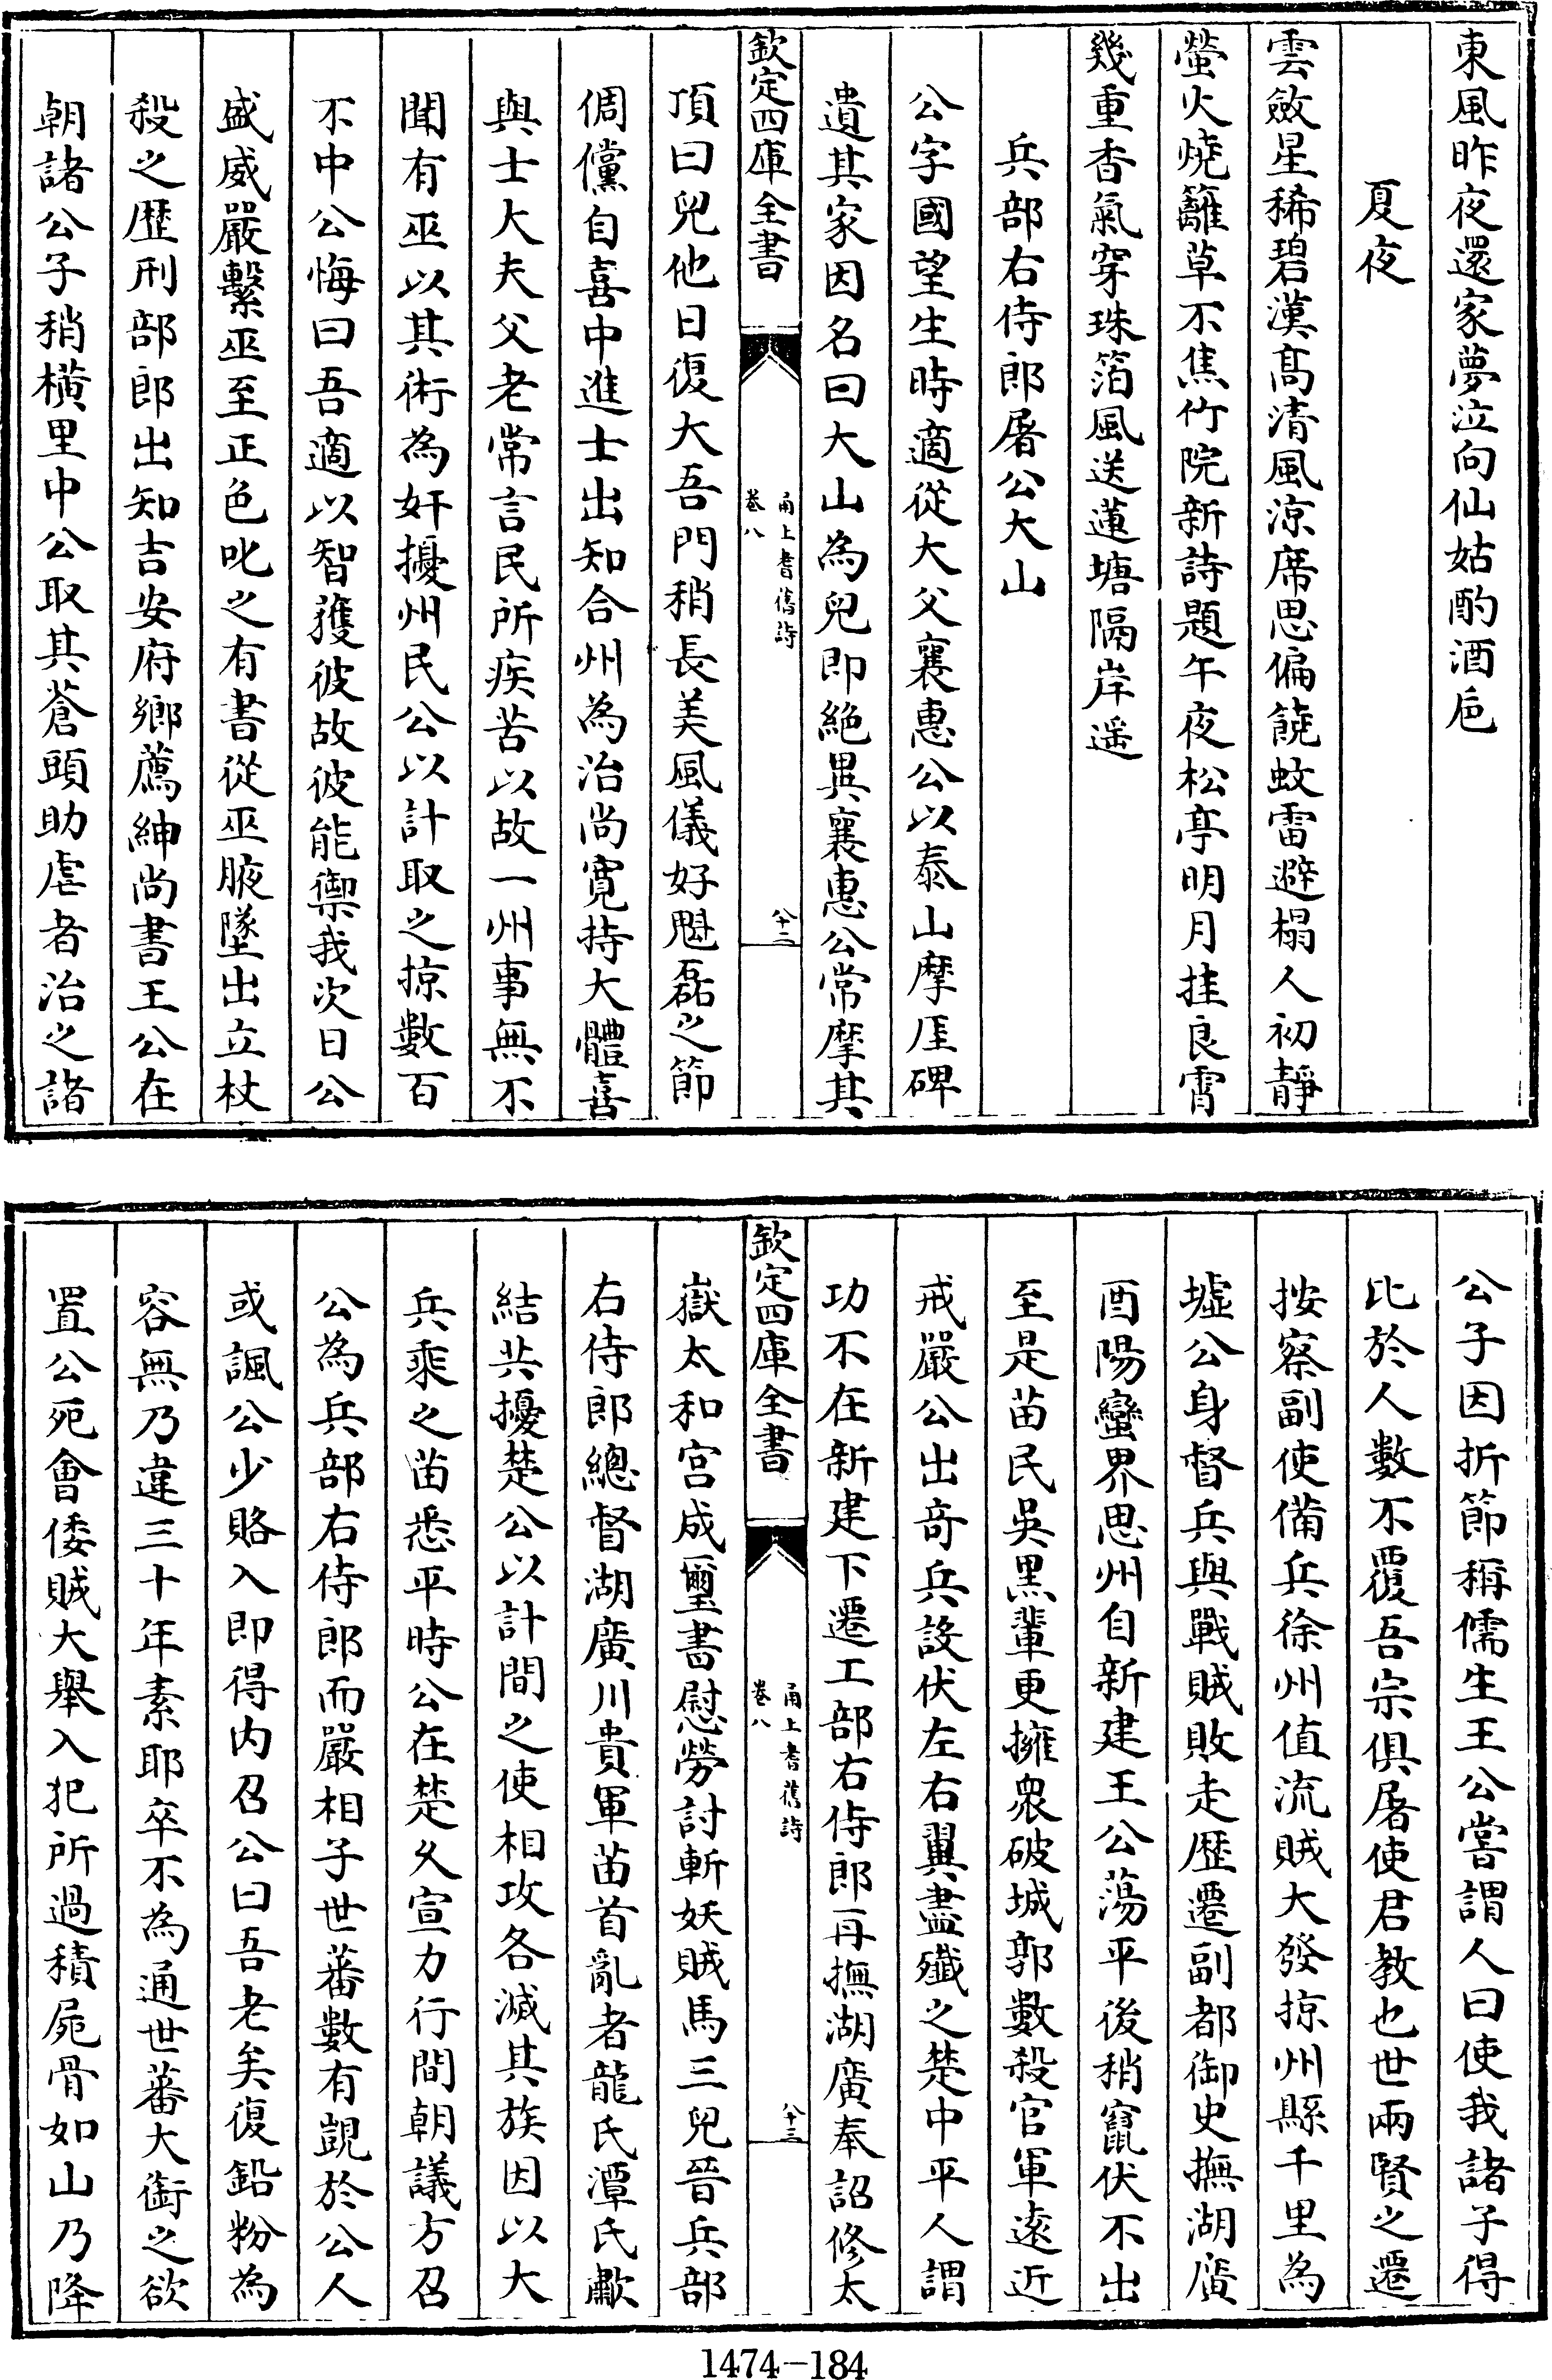 東風昨夜還家夢泣向仙姑酌酒巵
夏夜
雲斂星稀碧漢髙清風涼席思偏饒蚊雷避榻人初靜
螢火燒籬草不焦竹院新詩題午夜松亭明月挂良霄
幾重香氣穿珠箔風送蓮塘隔岸遥
兵部右侍郎屠公大山
公字國望生時適從大父襄惠公以泰山摩厓碑
遺其家因名曰大山為兒即絶異襄惠公常摩其
欽定四庫全書
甬上耆舊詩
卷八
八十二
頂曰兒他日復大吾門稍長美風儀好魁磊之節
倜儻自喜中進士出知合州為治尚寛持大體喜
與士大夫父老常言民所疾苦以故一州事無不
聞有巫以其術為奸擾州民公以計取之掠數百
不中公悔曰吾適以智獲彼故彼能禦我次日公
盛威嚴繫巫至正色叱之有書從巫腋墜出立杖
殺之歴刑部郎出知吉安府鄉薦紳尚書王公在
朝諸公子稍橫里中公取其蒼頭助虐者治之諸
公子因折節稱儒生王公嘗謂人曰使我諸子得
比於人數不覆吾宗俱屠使君教也世兩賢之遷
按察副使備兵徐州值流賊大發掠州縣千里為
墟公身督兵與戰賊敗走歴遷副都御史撫湖廣
酉陽蠻界思州自新建王公蕩平後稍竄伏不出
至是苗民吳黒輩更擁衆破城郭數殺官軍逺近
戒嚴公出竒兵設伏左右翼盡殲之楚中平人謂
功不在新建下遷工部右侍郎再撫湖廣奉詔修太
欽定四庫全書
甬上耆舊詩
卷八
八十三
嶽太和宫成璽書慰勞討斬妖賊馬三兒晉兵部
右侍郎總督湖廣川貴軍苗首亂者龍氏潭氏歗
結共擾楚公以計間之使相攻各滅其族因以大
兵乘之苗悉平時公在楚乆宣力行間朝議方召
公為兵部右侍郎而嚴相子世蕃數有覬於公人
或諷公少賂入即得内召公曰吾老矣復鉛粉為
容無乃違三十年素耶卒不為通世蕃大銜之欲
置公死會倭賊大舉入犯所過積屍骨如山乃降
1474-184